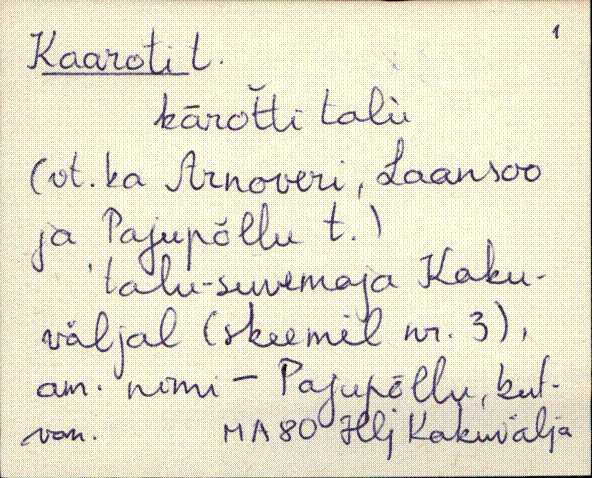 1
Kaaroti t.
kāroťti talù
(vt. ka Arnoveri, Laansoo
ja Pajupõllu t.)
talu-suvemaja Kaku-
väljal (skeemil nr. 3),
am. nimi - Pajupõllu, kut-
van. MA80 Hlj Kakuvälja